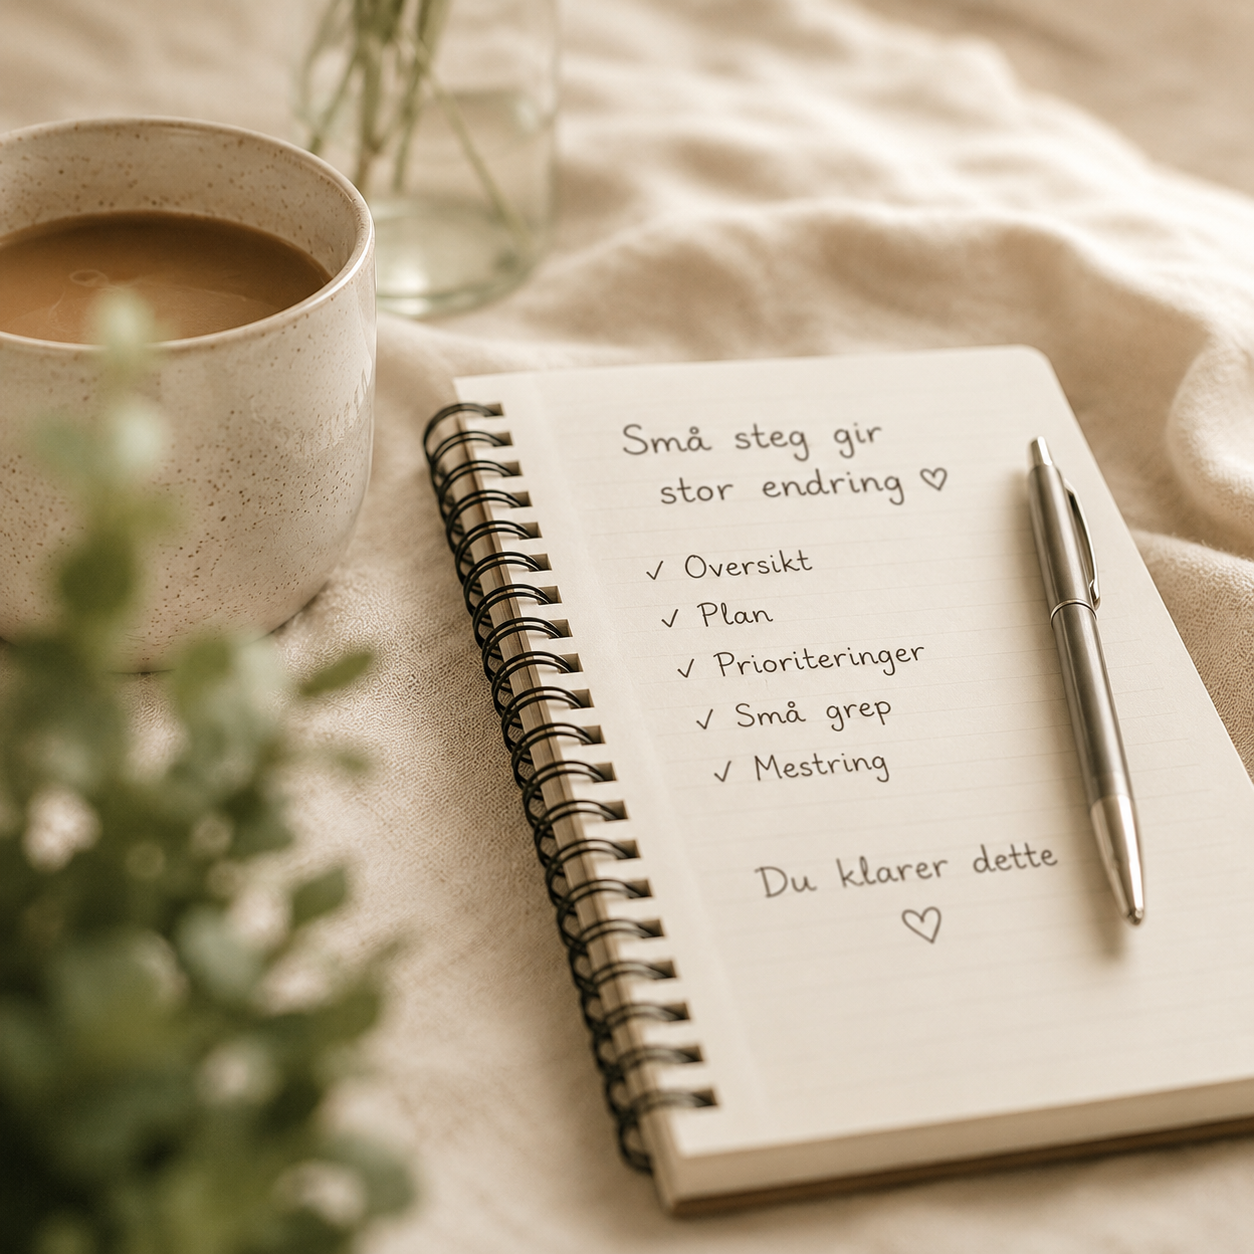 Små steg gir
stor endring ♡
✓ Oversikt
✓ Plan
✓ Prioriteringer
✓ Små grep
✓ Mestring
Du klarer dette
♡